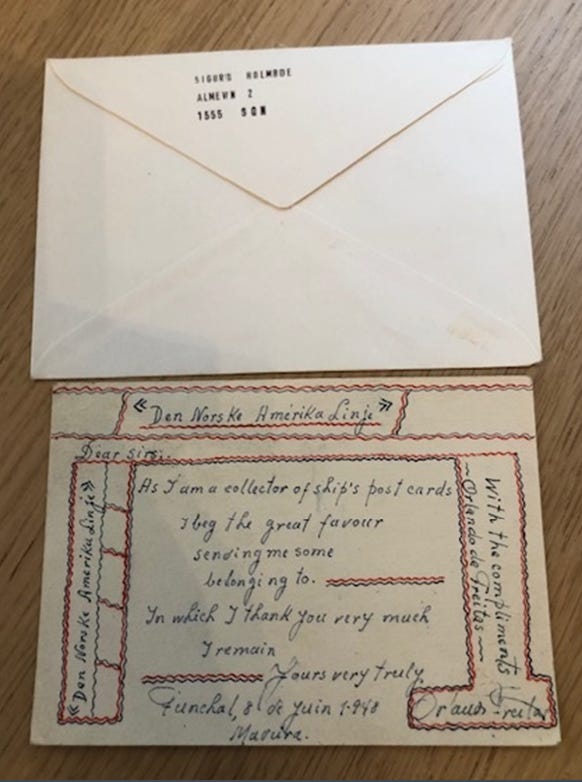 SIGURD HOLMBOE
ALMEVN 2
1555 SON
« Den Norske Amérika Linje »
Dear sirs:.
« Den Norske Amérika Linje »
As I am a collector of ship's post cards
I beg the great favour
sending me some
belonging to.
In which I thank you very much
I remain
Yours very truly
Funchal, 8 de Juin 1948
With the compliments
Orlando de Freitas
Freitas